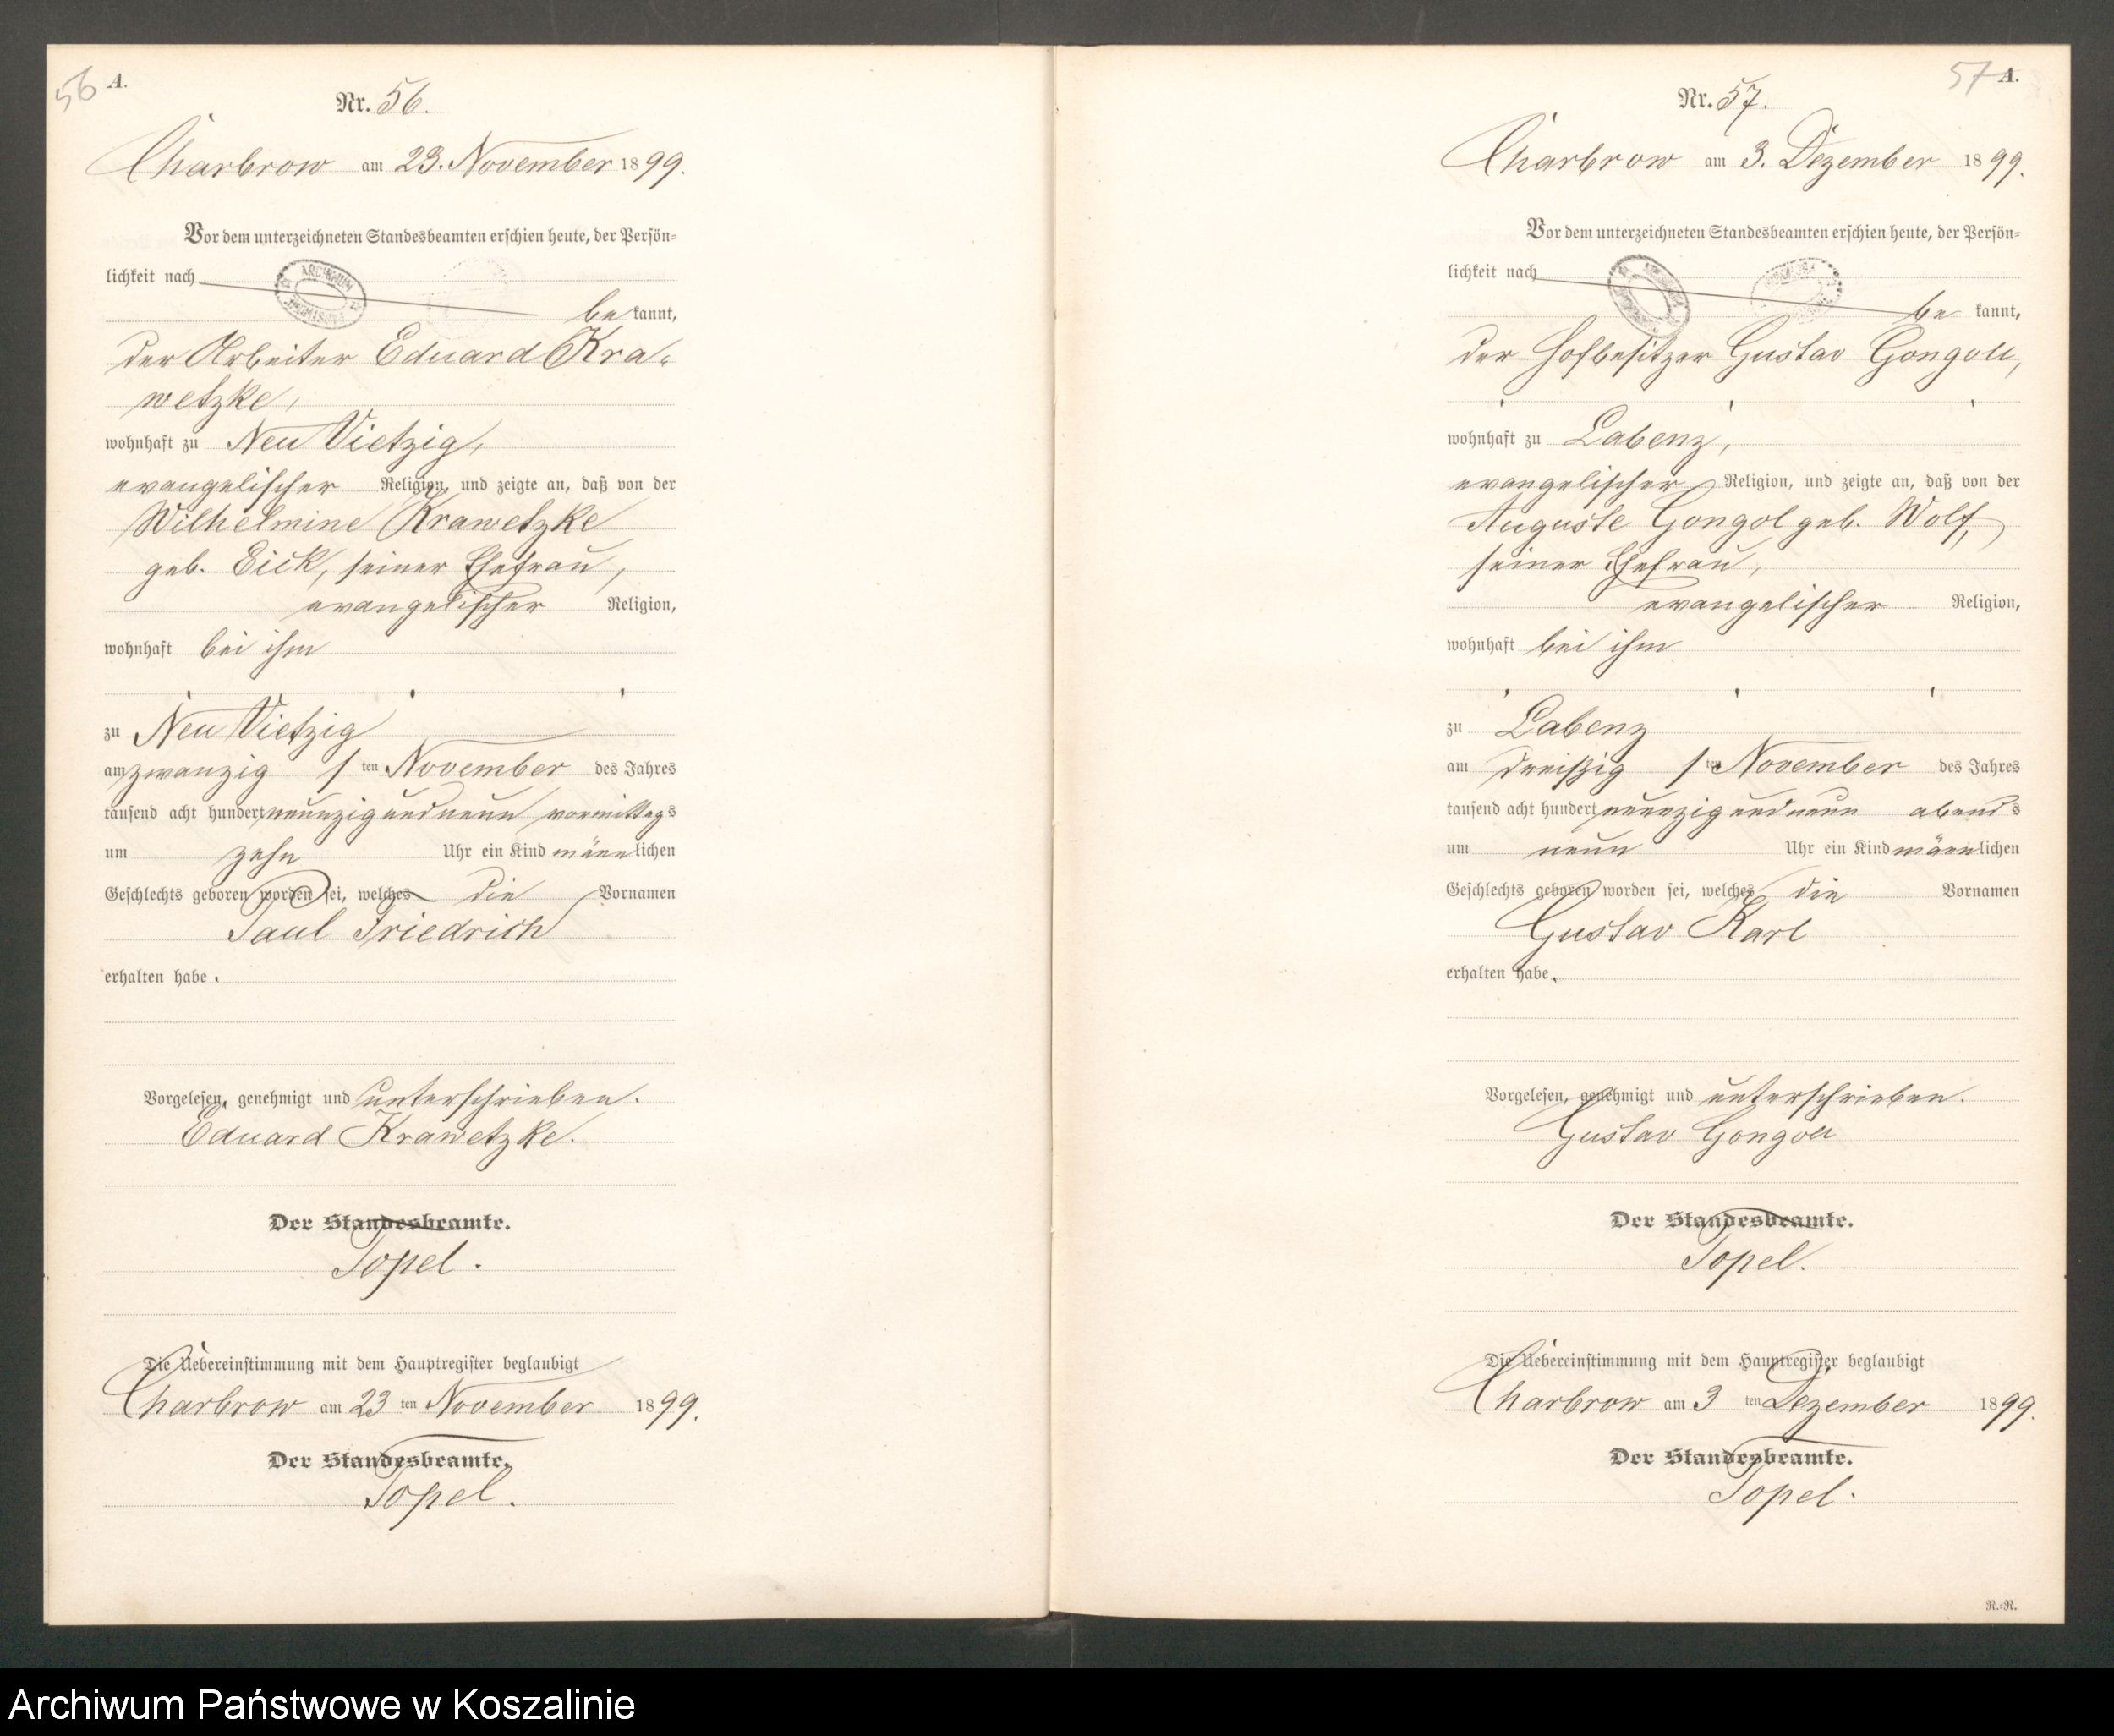 56 A.
Nr. 56.
Charbrow am 23. November 1899.
Vor dem unterzeichneten Standesbeamten erschien heute, der Persön-
lichkeit nach
be kannt,
der Arbeiter Eduard Kra-
wetzke,
wohnhaft zu Neu Vietzig,
evangelischer Religion, und zeigte an, daß von der
Wilhelmine Krawetzke
geb. Eick, seiner Ehefrau,
evangelischer Religion,
wohnhaft bei ihm
zu Neu Vietzig
am zwanzig sten November des Jahres
tausend acht hundert neunzig und neun vormittags
um zehn Uhr ein Kind männlichen
Geschlechts geboren worden sei, welches die Vornamen
Paul Friedrich
erhalten habe.
Vorgelesen, genehmigt und unterschrieben.
Eduard Krawetzke.
Der Standesbeamte.
Topel.
Die Uebereinstimmung mit dem Hauptregister beglaubigt
Charbrow am 23 ten November 1899.
Der Standesbeamte.
Topel.
57 A.
Nr. 57.
Charbrow am 3. Dezember 1899.
Vor dem unterzeichneten Standesbeamten erschien heute, der Persön-
lichkeit nach
be kannt,
der Hofbesitzer Gustav Gongoll,
wohnhaft zu Labenz,
evangelischer Religion, und zeigte an, daß von der
Auguste Gongol geb. Wolf,
seiner Ehefrau,
evangelischer Religion,
wohnhaft bei ihm
zu Labenz
am dreißig sten November des Jahres
tausend acht hundert neunzig und neun abends
um neun Uhr ein Kind männlichen
Geschlechts geboren worden sei, welches die Vornamen
Gustav Karl
erhalten habe.
Vorgelesen, genehmigt und unterschrieben.
Gustav Gongoll
Der Standesbeamte.
Topel.
Die Uebereinstimmung mit dem Hauptregister beglaubigt
Charbrow am 3 ten Dezember 1899.
Der Standesbeamte.
Topel.
R.=R.
Archiwum Państwowe w Koszalinie